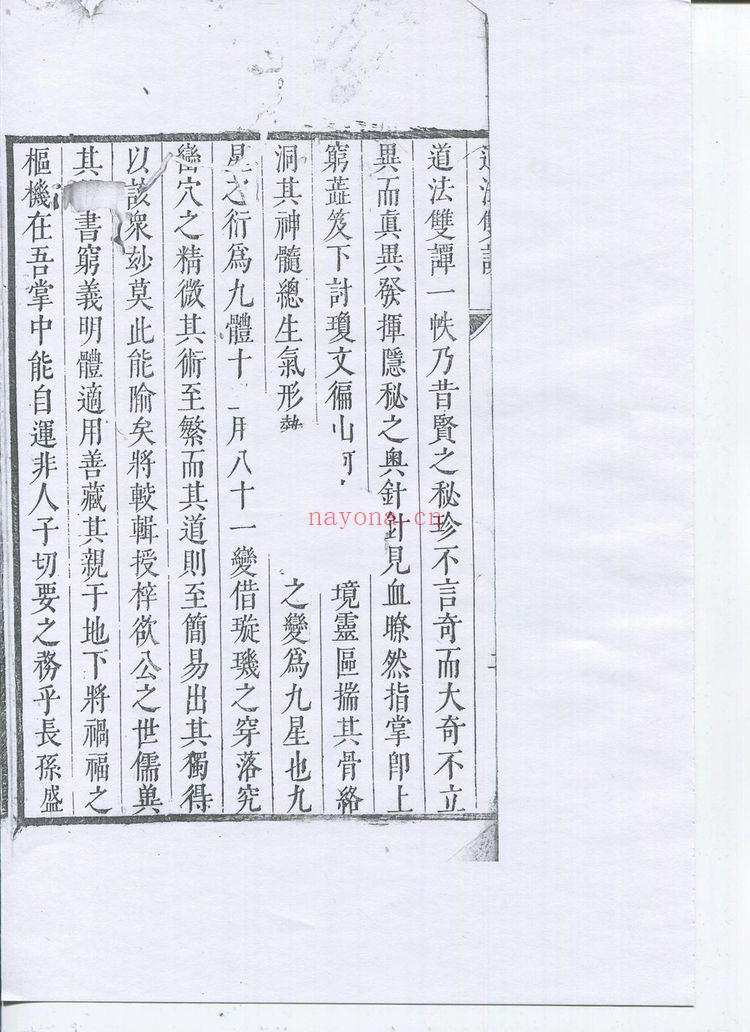 道法雙譚
二
道法雙譚一帙乃昔賢之秘珍不言奇而大奇不立
異而真異發揮隱秘之奧針針見血瞭然指掌卽上
窮蕋笈下討瓊文徧山河境靈區揣其骨絡
洞其神髓總生氣形勢之變爲九星也九
星之衍爲九體十二月八十一變借璇璣之穿落究
巒穴之精微其術至繁而其道則至簡易出其獨得
以該衆玅莫此能踰矣將較輯授梓欲公之世儒㒷
其書窮義明體適用善藏其親于地下將禍福之
樞機在吾掌中能自運非人子切要之務乎長孫盛
nayona.cn